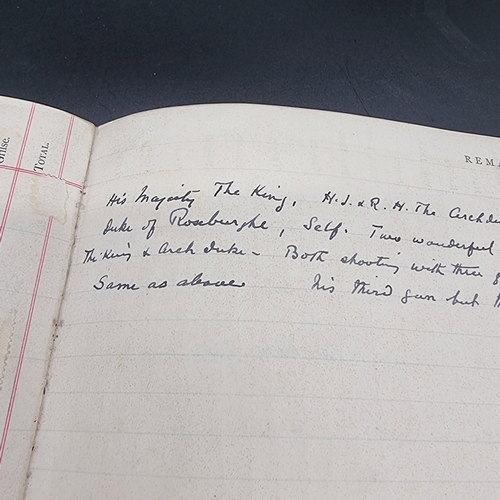 Grilse.
TOTAL.
REMA
His Majesty The King, H.I. & R.H. The Archdu
Duke of Roxburghe, Self. Two wonderful
The King & Arch Duke - Both shooting with three g
Same as above his third gun but th